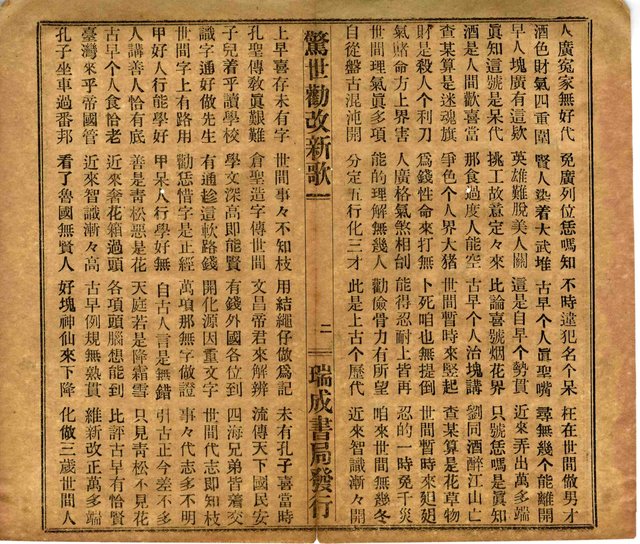 人廣冤家無好代 免廣列位恁嗎知 不時違犯名个呆 枉在世間做男才
酒色財氣四重圍 賢人染着大武堆 古早个人眞聖嘴 尋無幾个能離開
早人塊廣有這欵 英雄難脫美人關 這是自早个勢貫 近來弄出萬多端
眞知這號是呆代 挑工故意定々來 比論喜號烟花界 只號恁嗎是眞知
酒是人間歡喜當 那食過度人能空 古早个人治塊講 劉同酒醉江山亡
查某算是迷魂旗 爭色个人界大猪 世間暫時來堅起 查某算是花草物
財是殺人个利刀 爲錢性命來打無 卜死咱也無提倒 世間暫時來
氣賭命方上界害 人廣格氣煞相刣 能得忍耐上皆再 忍的一時免千災
世間理氣眞多項 能的理解無幾人 勸儉骨力有所望 咱來世間無幾冬
自從盤古混沌開 分定五行化三才 此是上古个歷代 近來智識漸々開
驚世勸改新歌 二 瑞成書局發行
上早喜存未有字 世間事々不知枝 用結繩仔做爲記 未有孔子喜當時
孔聖傳敎眞艱難 倉聖造字傳世間 文昌帝君來解辨 流傳天下國民安
子兒着乎讀學校 學文深高即能賢 有錢外國各位到 四海兄弟皆着交
識字通好做先生 有通趁這軟路錢 開化源因重文字 世間代志即知枝
世間字上有路用 勸恁惜字是正經 萬項那無字做證 事々代志多不明
甲好人行能學好 甲呆人行學好無 自古人言是無錯 引古正今差不多
人講善人恰有底 善是靑松惡是花 天庭若是降霜雪 只見靑松不見花
古早个人食恰老 近來奢花箱過頭 各項頭腦想能到 比評古早有恰賢
臺灣來乎帝國管 近來智識漸々高 古早例規無熟貫 維新改正萬多端
孔子坐車過番邦 看了魯國無賢人 好塊神仙來下降 化做三歲世間人